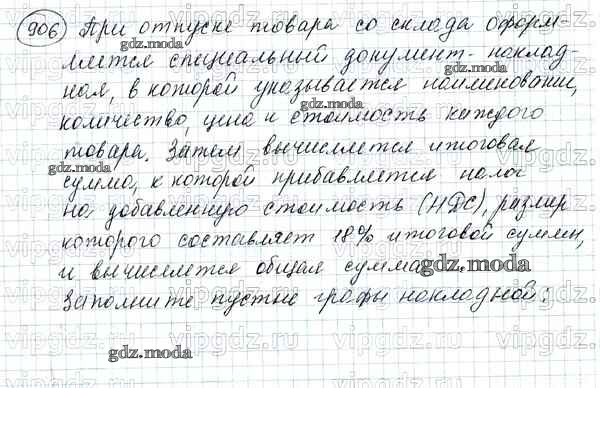 906 При отпуске товара со склада оформ-
ляется специальный документ - наклад-
ная, в которой указывается наименование,
количество, цена и стоимость каждого
товара. Затем вычисляется итоговая
сумма, к которой прибавляется налог
на добавленную стоимость (НДС), размер
которого составляет 18% итоговой суммы,
и вычисляется общая сумма.
Заполните пустые графы накладной:
gdz.moda
gdz.moda
gdz.moda
gdz.moda
gdz.moda
gdz.moda
gdz.moda
gdz.moda
vipgdz.ru